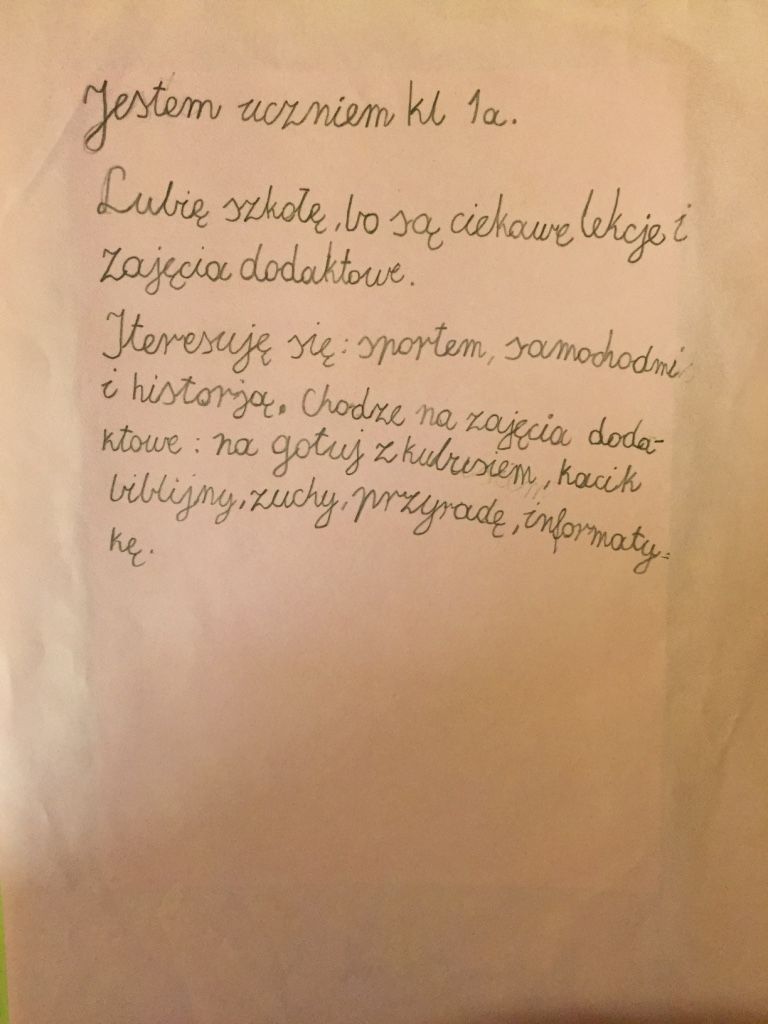 Jestem uczniem kl 1a.
Lubię szkołę, bo są ciekawę lekcje i
zajęcia dodaktowe.
Iteresuję się: sportem, samochodmi
i historją. Chodze na zajęcia doda-
ktowe: na gotuj z kubusiem, kacik
biblijny, zuchy, przyradę, informaty-
kę.